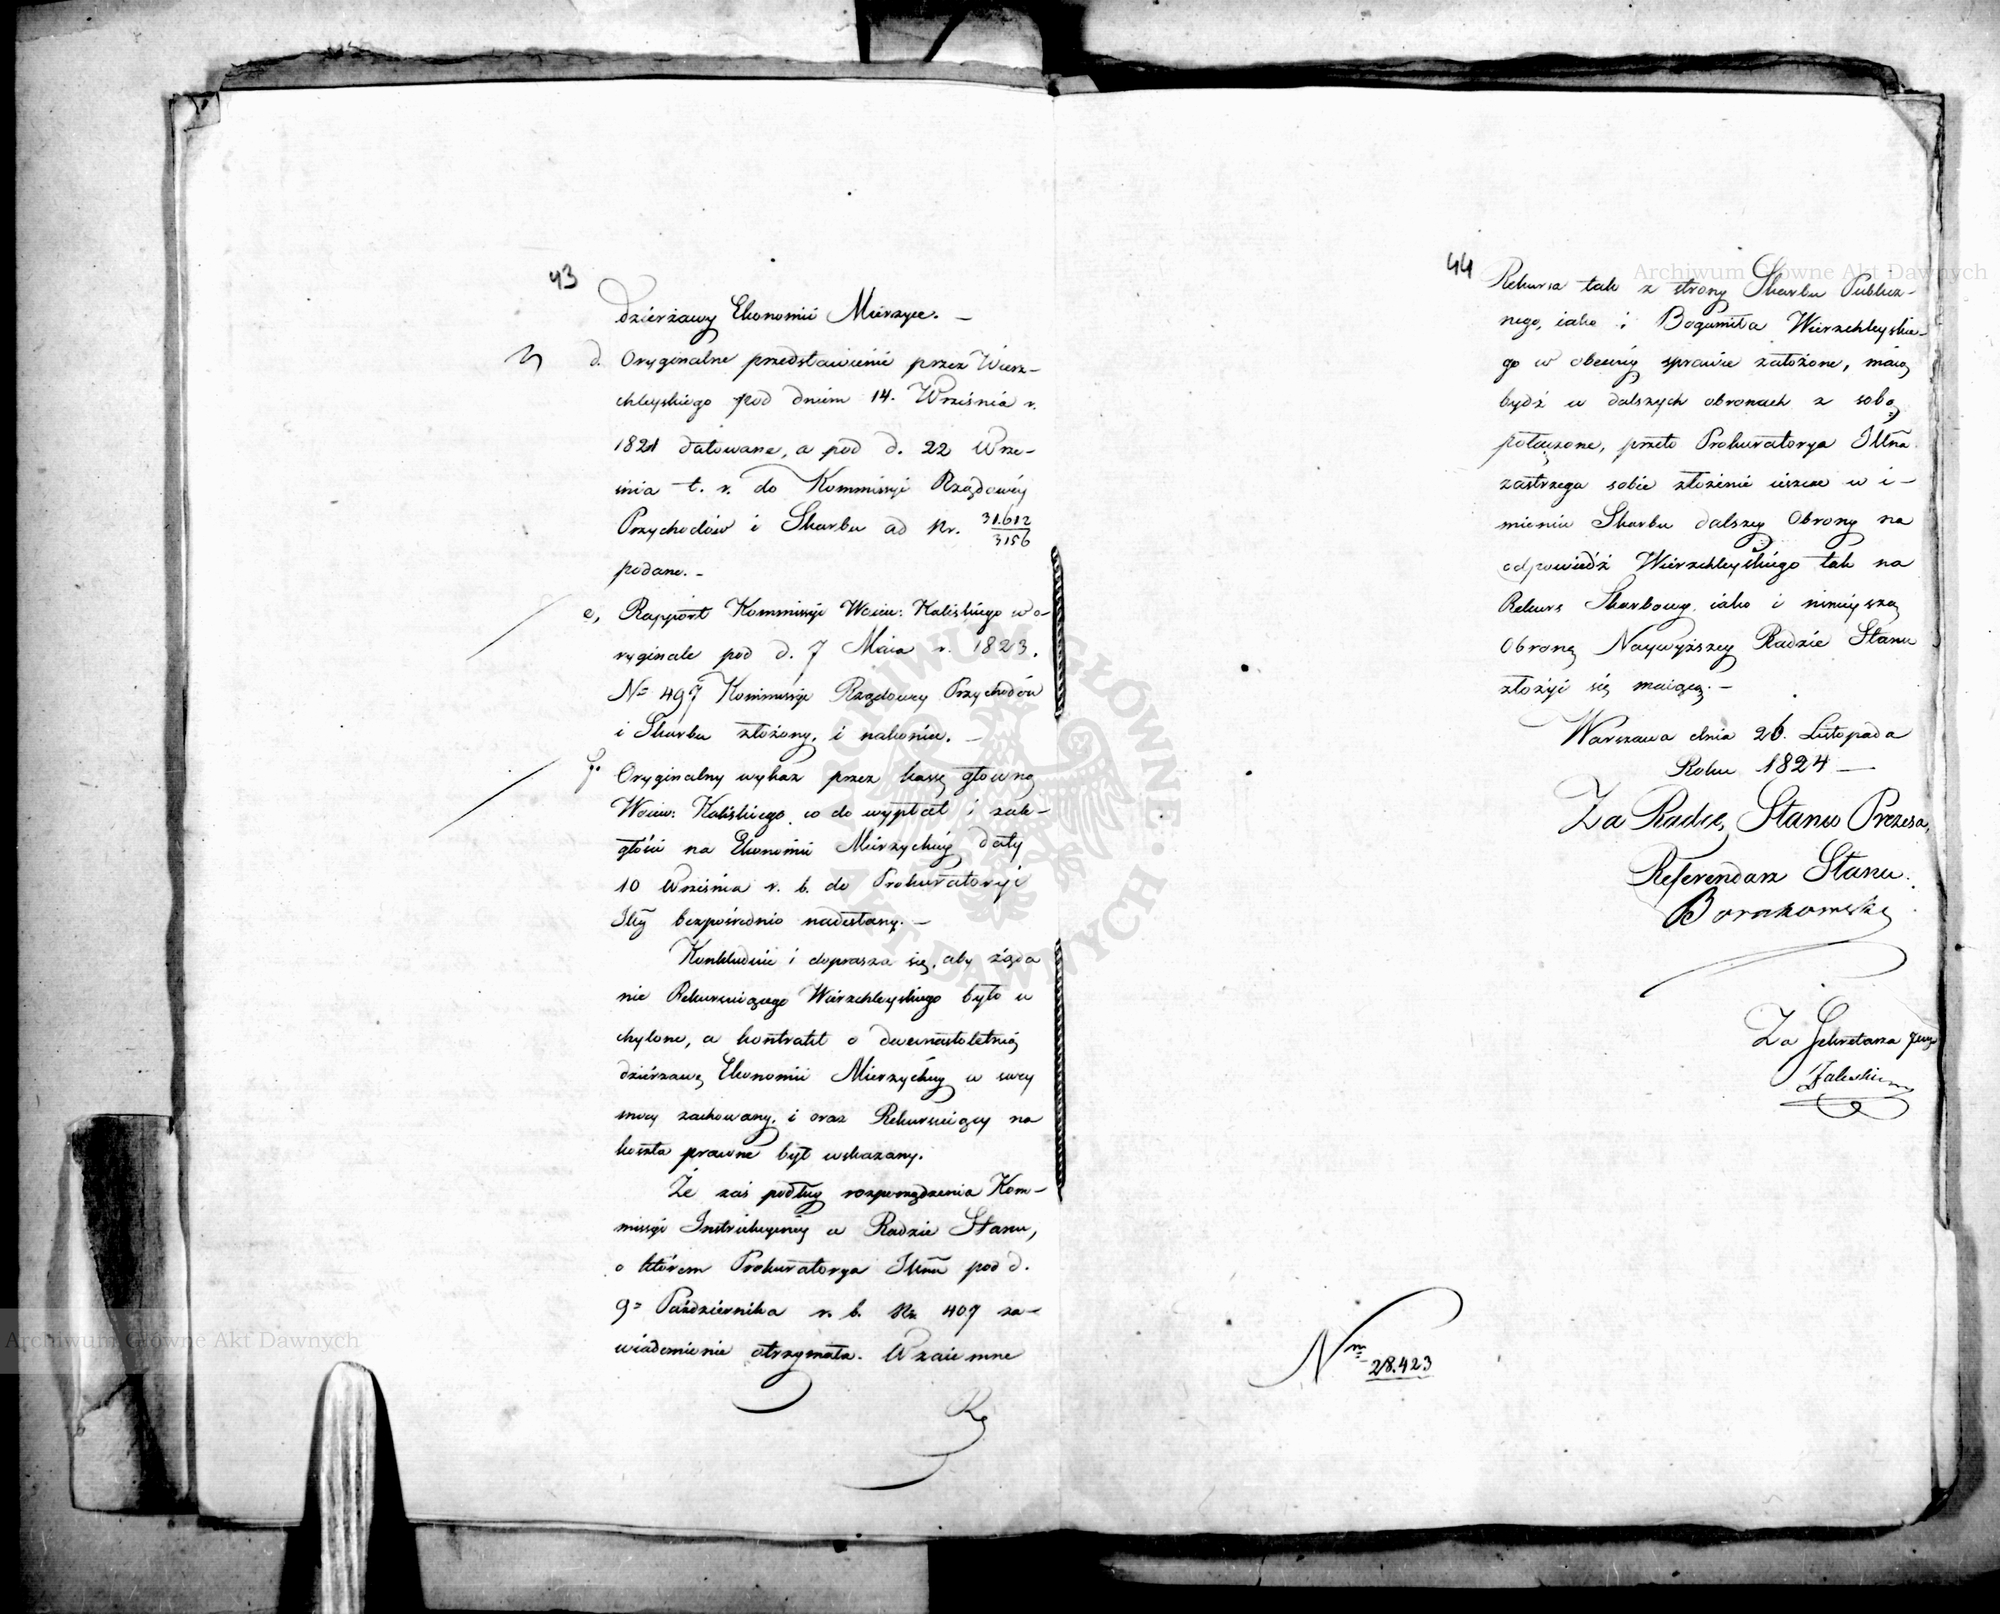 43
dzierżawy Ekonomii Mierzyce. —
d. Oryginalne przedstawienie przez Wierz-
chleyskiego pod dniem 14. Września r.
1821 datowane, a pod d. 22 Wrze-
śnia t. r. do Kommissyi Rządowéy
Przychodów i Skarbu ad Nr. 31.612/3156
podane. -
e, Rapport Kommissyi Woiew: Kaliskiego w o-
ryginale pod d. 7 Maia r. 1823.
No 497 Kommissyi Rządowey Przychodów
i Skarbu złożony, i nakoniec. —
f. Oryginalny wykaz przez kassę główną
Woiew: Kaliskiego, co do wypłat i zale-
głości na Ekonomii Mierzyckiéy daty
10 Września r. b. do Prokuratoryi
Jlnéy bezpośrednio nadesłany. —
Konkluduie i doprasza się, aby żąda
nie Rekursuiącego Wierzchleyskiego było u
chylone, a kontrakt o dwunastoletnią
dzierżawę Ekonomii Mierzyckiéy w swey
mocy zachowany, i oraz Rekursuiący na
koszta prawne był wskazany.
Że zaś podług rozporządzenia Kom-
missyi Instrukcyinéy w Radzie Stanu,
o którem Prokuratorya Jlna pod d.
9o Października r. b. Nr 407 za-
wiadomienie otrzymała. Wzaiemne
Re
44
Rekursa tak z strony Skarbu Publicz-
nego, iako i Bogumiła Wierzchleyskie-
go w obecnéy sprawie założone, maią
bydź w dalszych obronach z sobą
połączone, przeto Prokuratorya Jlna
zastrzega sobie złożenie ieszcze w i-
mieniu Skarbu dalszey Obrony na
odpowiedź Wierzchleyskiego tak na
Rekurs Skarbowy, iako i ninieyszą
Obronę Naywyższey Radzie Stanu
złożyć się maiącą. —
Warszawa dnia 26. Listopada
Roku 1824 —
Za Radcę Stanu Prezesa,
Referendarz Stanu.
Za Sekretarza
Zaleski
Nro 28.423
Archiwum Główne Akt Dawnych
Archiwum Główne Akt Dawnych
ARCHIWUM GŁÓWNE AKT DAWNYCH